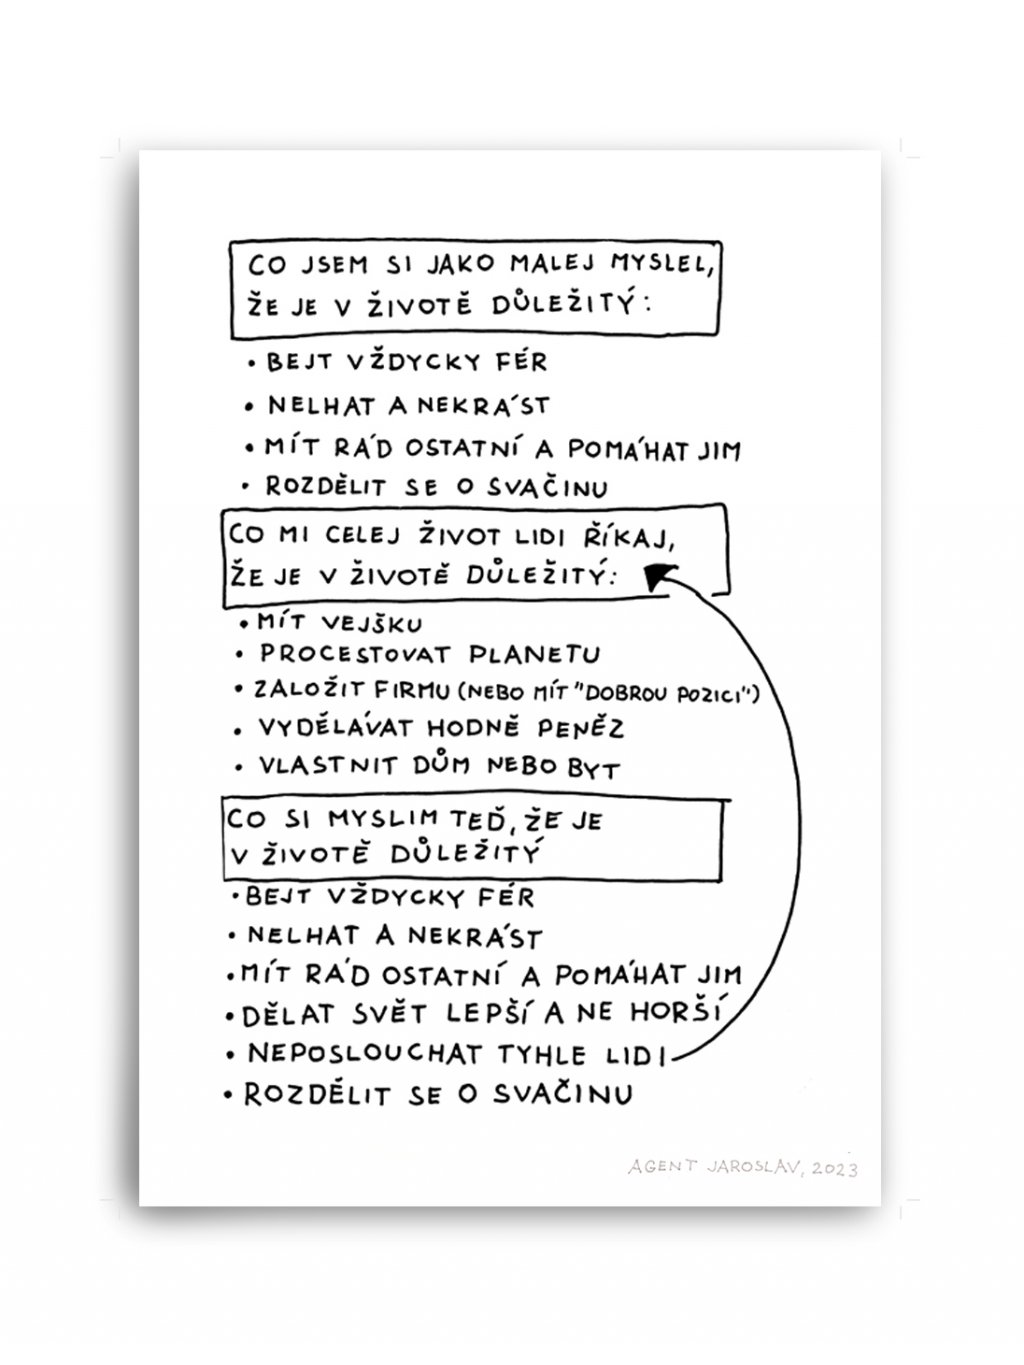 CO JSEM SI JAKO MALEJ MYSLEL,
ŽE JE V ŽIVOTĚ DŮLEŽITÝ:
• BEJT VŽDYCKY FÉR
• NELHAT A NEKRÁST
• MÍT RÁD OSTATNÍ A POMÁHAT JIM
• ROZDĚLIT SE O SVAČINU
CO MI CELEJ ŽIVOT LIDI ŘÍKAJ,
ŽE JE V ŽIVOTĚ DŮLEŽITÝ:
• MÍT VEJŠKU
• PROCESTOVAT PLANETU
• ZALOŽIT FIRMU (NEBO MÍT "DOBROU POZICI")
• VYDĚLÁVAT HODNĚ PENĚZ
• VLASTNIT DŮM NEBO BYT
CO SI MYSLIM TEĎ, ŽE JE
V ŽIVOTĚ DŮLEŽITÝ
• BEJT VŽDYCKY FÉR
• NELHAT A NEKRÁST
• MÍT RÁD OSTATNÍ A POMÁHAT JIM
• DĚLAT SVĚT LEPŠÍ A NE HORŠÍ
• NEPOSLOUCHAT TYHLE LIDI
• ROZDĚLIT SE O SVAČINU
AGENT JAROSLAV, 2023